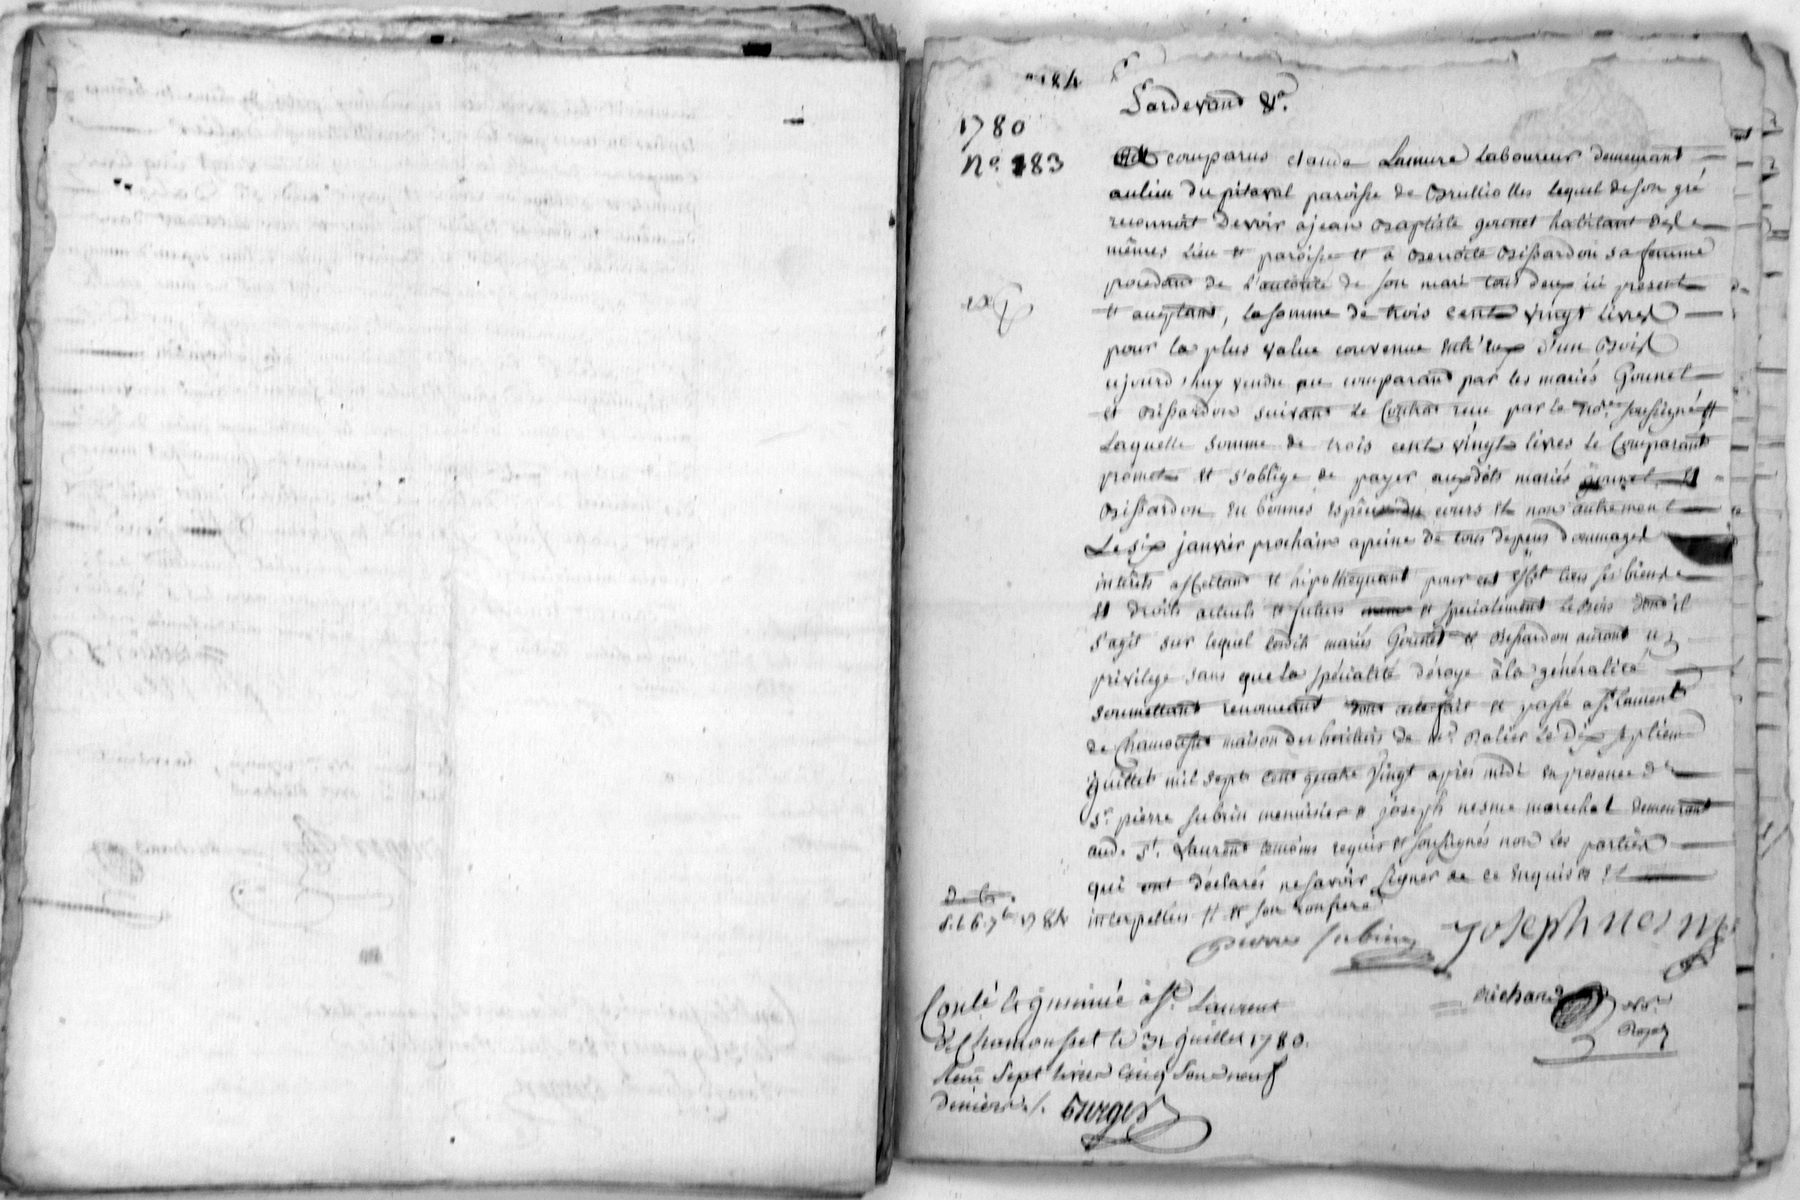 184
Pardevant &c.
1780
N.o 183
Est comparus claude Lamure Laboureur demeurant
au lieu du pitaval paroisse de Brulliolles lequel de son gré
reconnoit devoir a jean Baptiste gounet habitant des
mêmes Lieu et paroisse et a Benoite Bissardon sa femme
procedant de l'autorité de son mari tous deux ici present
et acceptans, la somme de trois cents vingt livres
pour la plus value convenue entr'eux d'un Bois
ajourd'huy vendu au comparant par les mariés Gounet
et Bissardon suivant Le Contrat reçu par le no.re soussigné
Laquelle somme de trois cents vingts livres le Comparant
promet et s'oblige de payer auxdits mariés gounet et
Bissardon en bonnes espèces du cours et non autrement
Le six janvier prochain apeine de tous depens dommages
intérêts affectant et hipothequant pour cet effet tous ses biens
et droits actuels et futurs et specialement le bois dont il
s'agit sur lequel lesdits mariés Gounet et Bissardon auront
privilege sans que la spécialité déroge à la généralité
soumettant renonceant dont acte fait et passé a St. Laurent
de Chamousset maison des heritiers de Balier Le Dix septieme
juillet mil sept cent quatre vingt après midi en presence de
Sr. pierre Subrin menuisier & joseph nesme marechal demeurant
aud. St. Laurent temoins requis et soussignés non les parties
qui ont déclarés ne savoir signer de ce enquis et
interpellés
1784
pierre Subrin Joseph nesme
Richard no.re Royal
Conlé le gminué à St. Laurent
de Chamousset le 31 juillet 1780.
Reçu Sept livres cinq sous neuf
deniers ./.